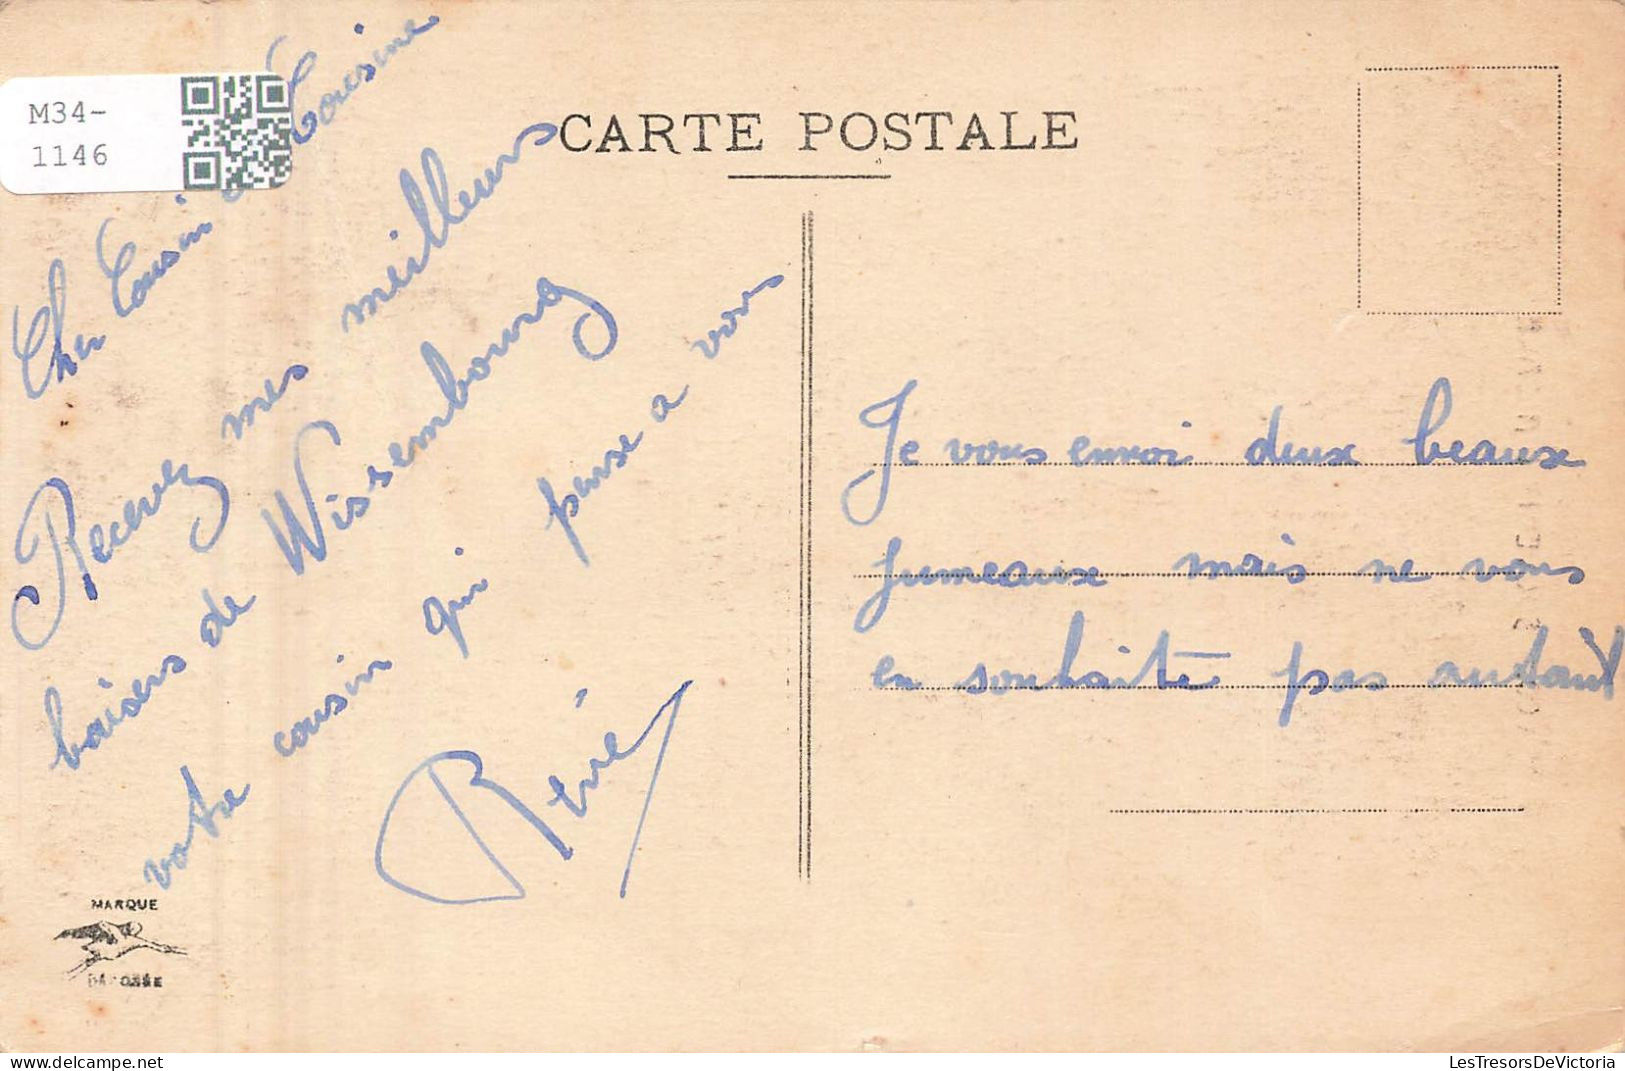 M34-
1146
CARTE POSTALE
Cher Cousin & Cousine
Recevez mes meilleurs
baisers de Wissembourg
votre cousin qui pense a vous
René
Je vous envoi deux beaux
jumeaux mais ne vous
en souhaite pas autant
MARQUE
DÉPOSÉE
LesTresorsDeVictoria